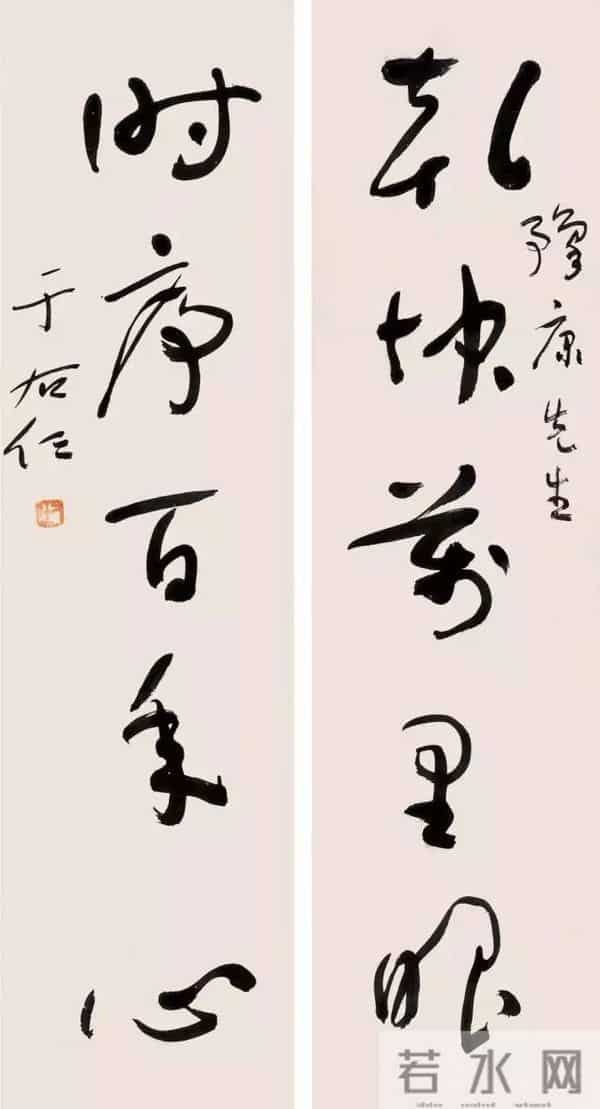 乾坤萬里眼
豫康先生
时序百年心
于右任
若水网